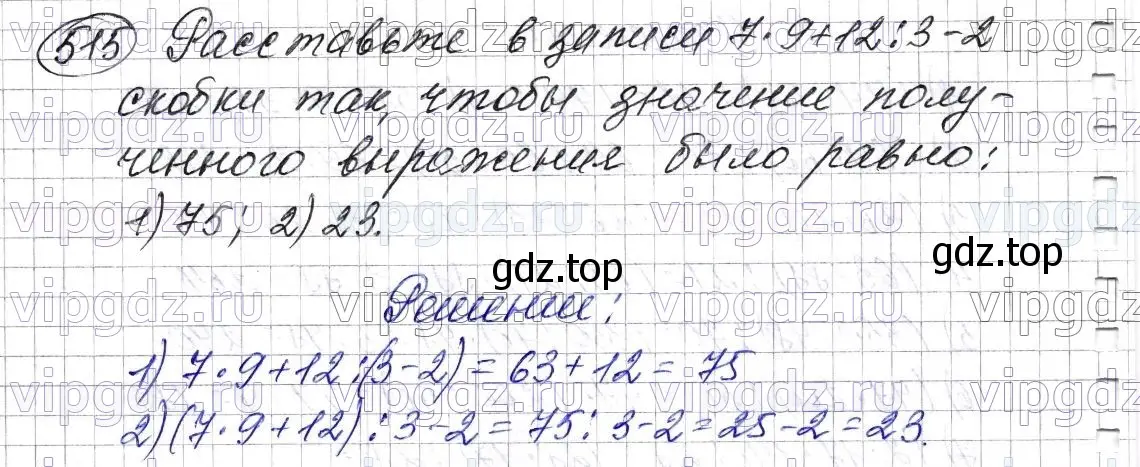 515 Расставьте в записи 7·9+12:3-2
скобки так, чтобы значение полу-
ченного выражения было равно:
1) 75; 2) 23.
gdz.top
Решении:
1) 7·9+12:(3-2)=63+12=75
2) (7·9+12):3-2=75:3-2=25-2=23.
vipgdz.ru